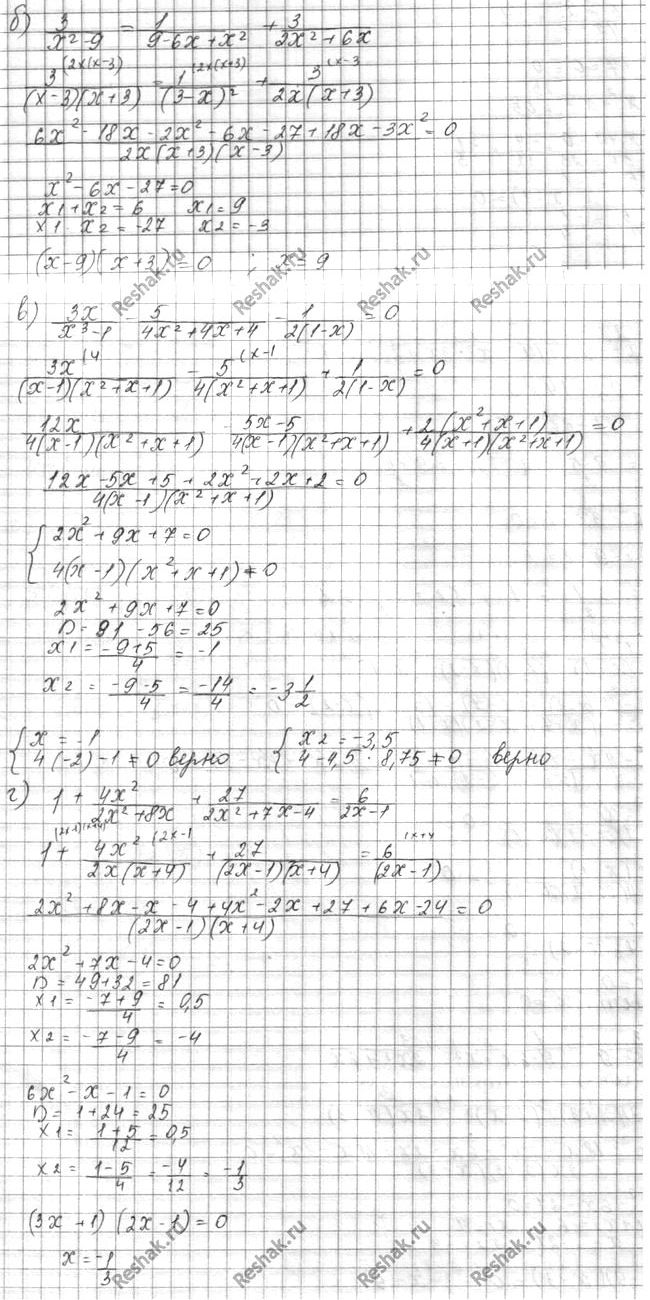 б) 3/(x²-9) = 1/(9-6x+x²) + 3/(2x²+6x)
3 (2x(x-3) /((x-3)(x+3)) = 1 (2x(x+3) /(3-x)² + 3 (x-3 /(2x(x+3))
(6x²-18x-2x²-6x-27+18x-3x²)/(2x(x+3)(x-3)) = 0
x²-6x-27=0
x1+x2=6 x1=9
x1·x2=-27 x2=-3
(x-9)(x+3)=0 ; x=9
в) 3x/(x³-1) - 5/(4x²+4x+4) - 1/(2(1-x)) = 0
3x (4 /((x-1)(x²+x+1)) - 5 (x-1 /(4(x²+x+1)) + 1/(2(1-x)) = 0
12x/(4(x-1)(x²+x+1)) - (5x-5)/(4(x-1)(x²+x+1)) + 2(x²+x+1)/(4(x+1)(x²+x+1)) = 0
(12x-5x+5+2x²+2x+2)/(4(x-1)(x²+x+1)) = 0
{ 2x²+9x+7=0
4(x-1)(x²+x+1)≠0
2x²+9x+7=0
D=81-56=25
x1=(-9+5)/4=-1
x2=(-9-5)/4=-14/4=-3 1/2
{ x=-1 { x2=-3,5
4(-2)-1≠0 верно 4-4,5·8,75≠0 верно
г) 1 + 4x²/(2x²+8x) + 27/(2x²+7x-4) = 6/(2x-1)
1 (2x-1)(x+4) + 4x² (2x-1 /(2x(x+4)) + 27/((2x-1)(x+4)) = 6 (x+4 /(2x-1)
(2x²+8x-x-4+4x²-2x+27+6x-24)/((2x-1)(x+4)) = 0
2x²+7x-4=0
D=49+32=81
x1=(-7+9)/4=0,5
x2=(-7-9)/4=-4
6x²-x-1=0
D=1+24=25
x1=(1+5)/12=0,5
x2=(1-5)/4=-4/12=-1/3
(3x+1)(2x-1)=0
x=-1/3
Reshak.ru
Reshak.ru
Reshak.ru
Reshak.ru
Reshak.ru
Reshak.ru
Reshak.ru
Reshak.ru
Reshak.ru